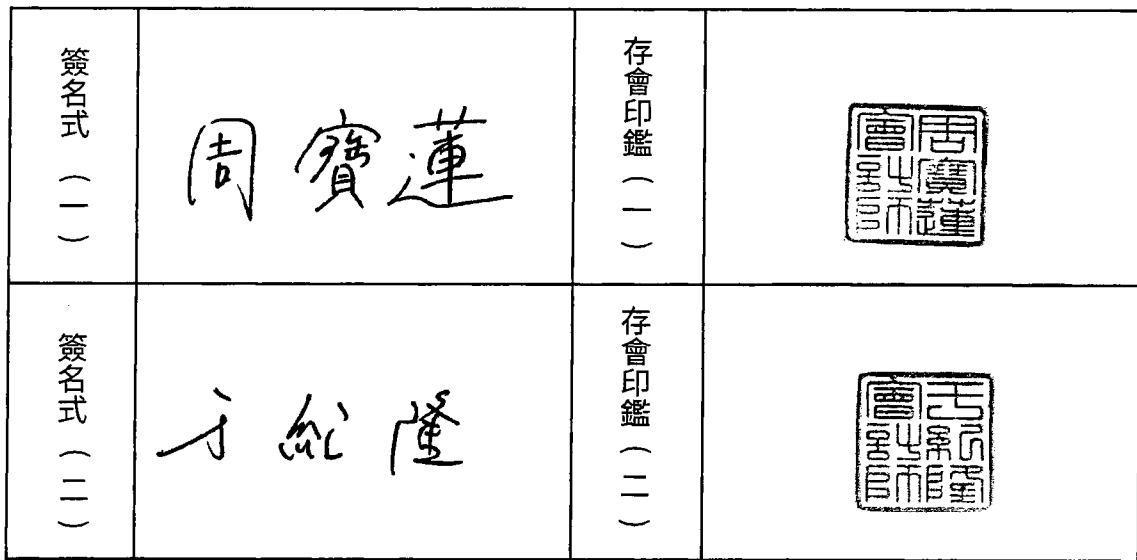 簽名式(一)
周寶蓮
存會印鑑(一)
周寶蓮
會計師
簽名式(二)
于紀隆
存會印鑑(二)
于紀隆
會計師